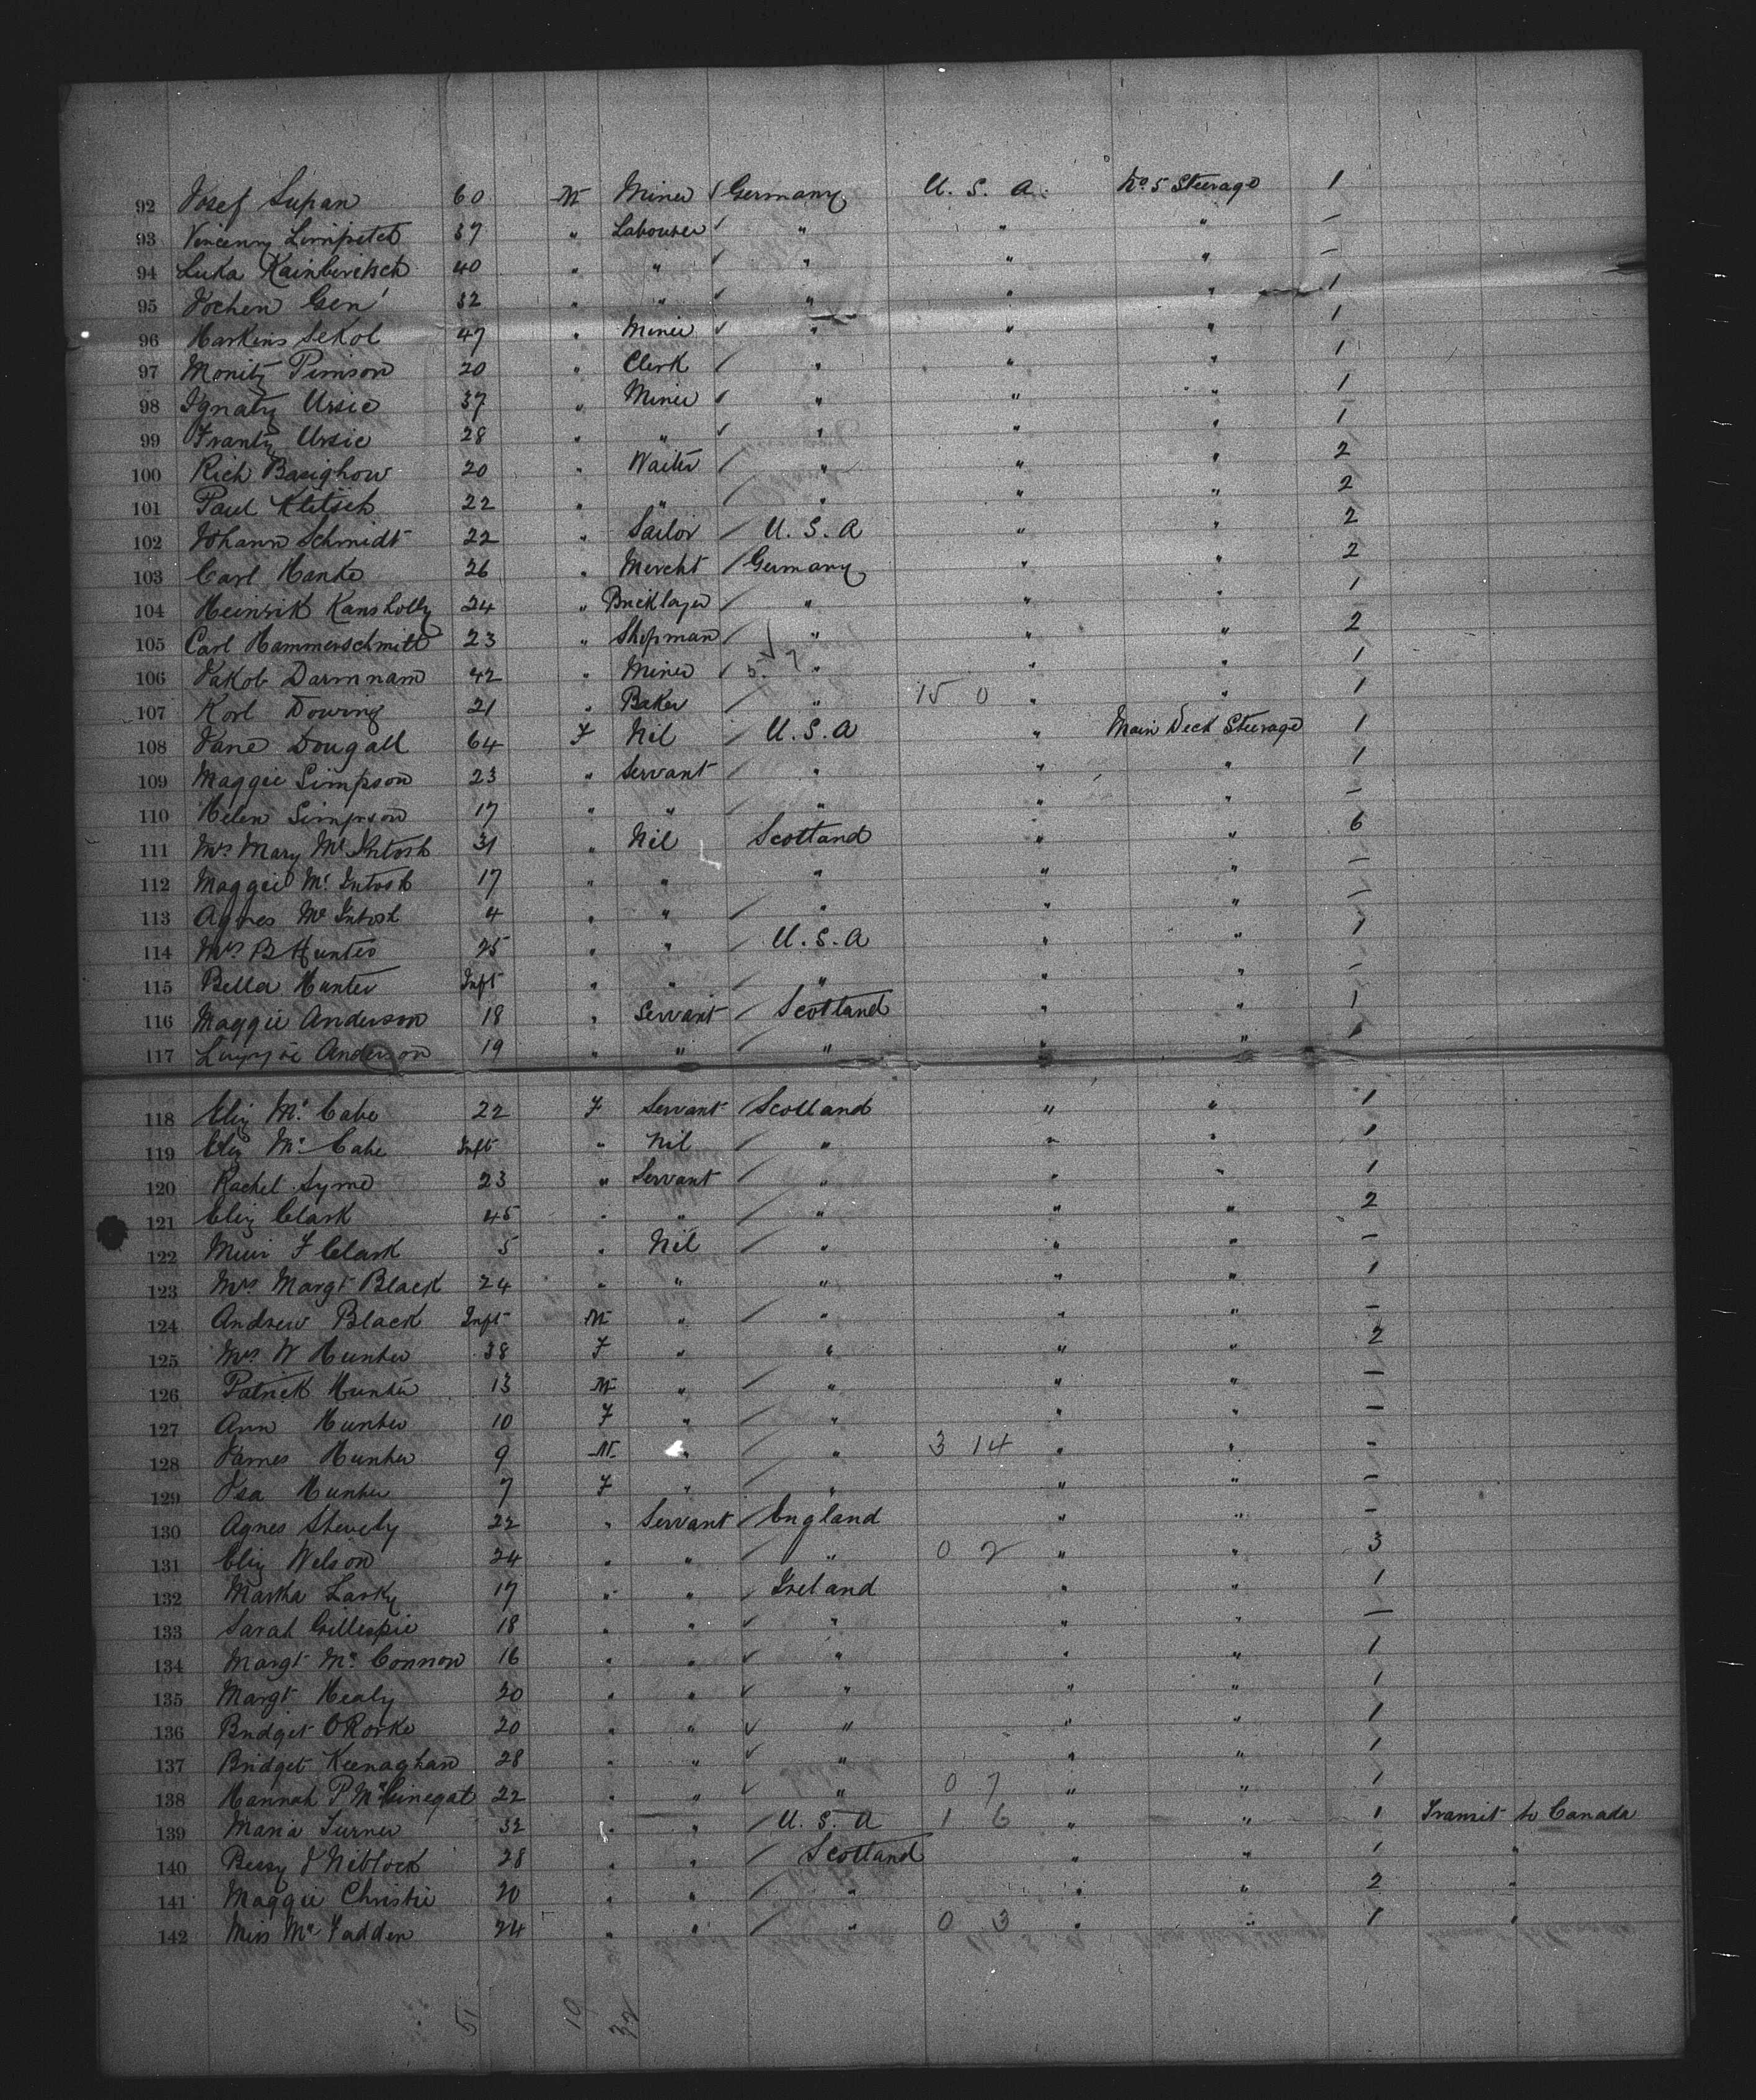 92 Josef Supan 60 M Miner / Germany U. S. A. No. 5 Steerage 1
93 Vincenz Limpitet 37 " Labourer / " " " —
94 Luka Kainbiritsch 40 " " / " " " —
95 Jochen Gen 32 " " / " " " 1
96 Markins Sekol 47 " Miner / " " " 1
97 Monitz Pimson 20 " Clerk / " " " 1
98 Ignatz Ursic 37 " Miner / " " " 1
99 Frantz Ursic 28 " " / " " " 1
100 Rich Basighow 20 " Waiter / " " " 2
101 Paul Klitsch 22 " " / " " " 2
102 Johann Schmidt 22 " Sailor / U. S. A " " 2
103 Carl Hanke 26 " Mercht / Germany " " 2
104 Heinrik Kansholly 24 " Bricklayer / " " " 1
105 Carl Hammerschmitt 23 " Shopman / " " " 2
106 Jakob Darmnam 42 " Miner / " " " 1
107 Korl Dowing 21 " Baker / " 15 0 " " 1
108 Jane Dougall 64 F Nil / U. S. A " Main Deck Steerage 1
109 Maggie Simpson 23 " Servant / " " " 1
110 Helen Simpson 17 " " / " " " —
111 Mrs Mary McIntosh 31 " Nil Scotland " " 6
112 Maggie McIntosh 17 " " " " " —
113 Agnes McIntosh 4 " " / " " " —
114 Mrs B Hunter 25 " " / U. S. A " " 1
115 Bella Hunter Inft " " / " " " —
116 Maggie Anderson 18 " Servant / Scotland " " 1
117 Anderson 19 " " / " " " 1
118 Eliz McCabe 22 F Servant / Scotland " " 1
119 Eliz McCabe Inft " Nil / " " " 1
120 Rachel Syme 23 " Servant / " " " 1
121 Eliz Clark 45 " " / " " " 2
122 Muir F Clark 5 " Nil / " " " —
123 Mrs Margt Black 24 " " " " " 1
124 Andrew Black Inft M " / " " " —
125 Mrs W Hunter 38 F " " " " 2
126 Patrick Hunter 13 M " / " " " —
127 Ann Hunter 10 F " / " " " —
128 James Hunter 9 M " / " 3 14 " " —
129 Isa Hunter 7 F " / " " " —
130 Agnes Stevely 22 " Servant / England " " —
131 Eliz Wilson 24 " " / " 0 2 " " 3
132 Martha Larky 17 " " / Ireland " " 1
133 Sarah Gillespie 18 " " / " " " —
134 Margt McConnon 16 " " / " " " 1
135 Margt Healy 20 " " / " " " 1
136 Bridget O'Rorke 20 " " / " " " 1
137 Bridget Keenaghan 28 " " / " " " 1
138 Hannah P McGinegat 22 " " / " 0 7 " " 1
139 Maria Turner 32 " " / U. S. A 1 6 " " 1 Transit to Canada
140 Bessy J Niblock 28 " " / Scotland " " 1 "
141 Maggie Christie 20 " " / " " " 2 "
142 Miss McFadden 24 " " / " 0 3 " " 1 "
51 19 32